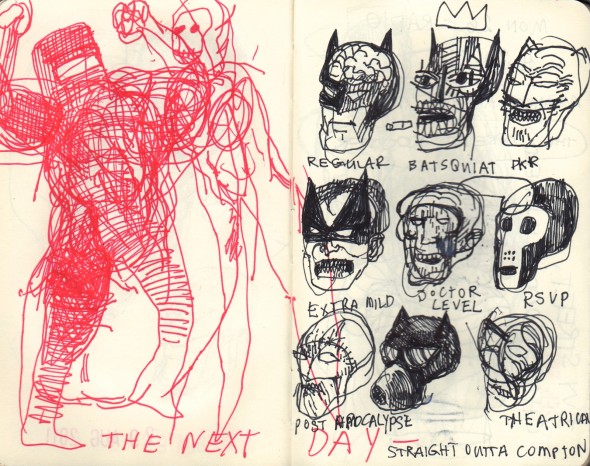 REGULAR
BATSQUIAT
DKR
EXTRA MILD
DOCTOR
LEVEL
RSVP
POST APOCALYPSE
THEATRICAL
THE NEXT DAY –
STRAIGHT OUTTA COMPTON